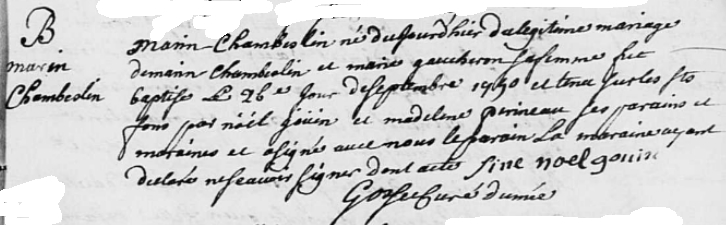 B
marin
Chambeslin
marin Chambeslin né du jourdhier du legitime mariage
de marin Chambeslin et marie gaucheron sa femme fut
baptisé Le 26e jour de septembre 1750 et tenu sur les sts
fons par nöël goüin et madelene perineau ses parains et
maraines et a signé avec nous le parain La maraine ayant
declaré ne scavoir signer dont acte sine noel gouin
Curé dumée